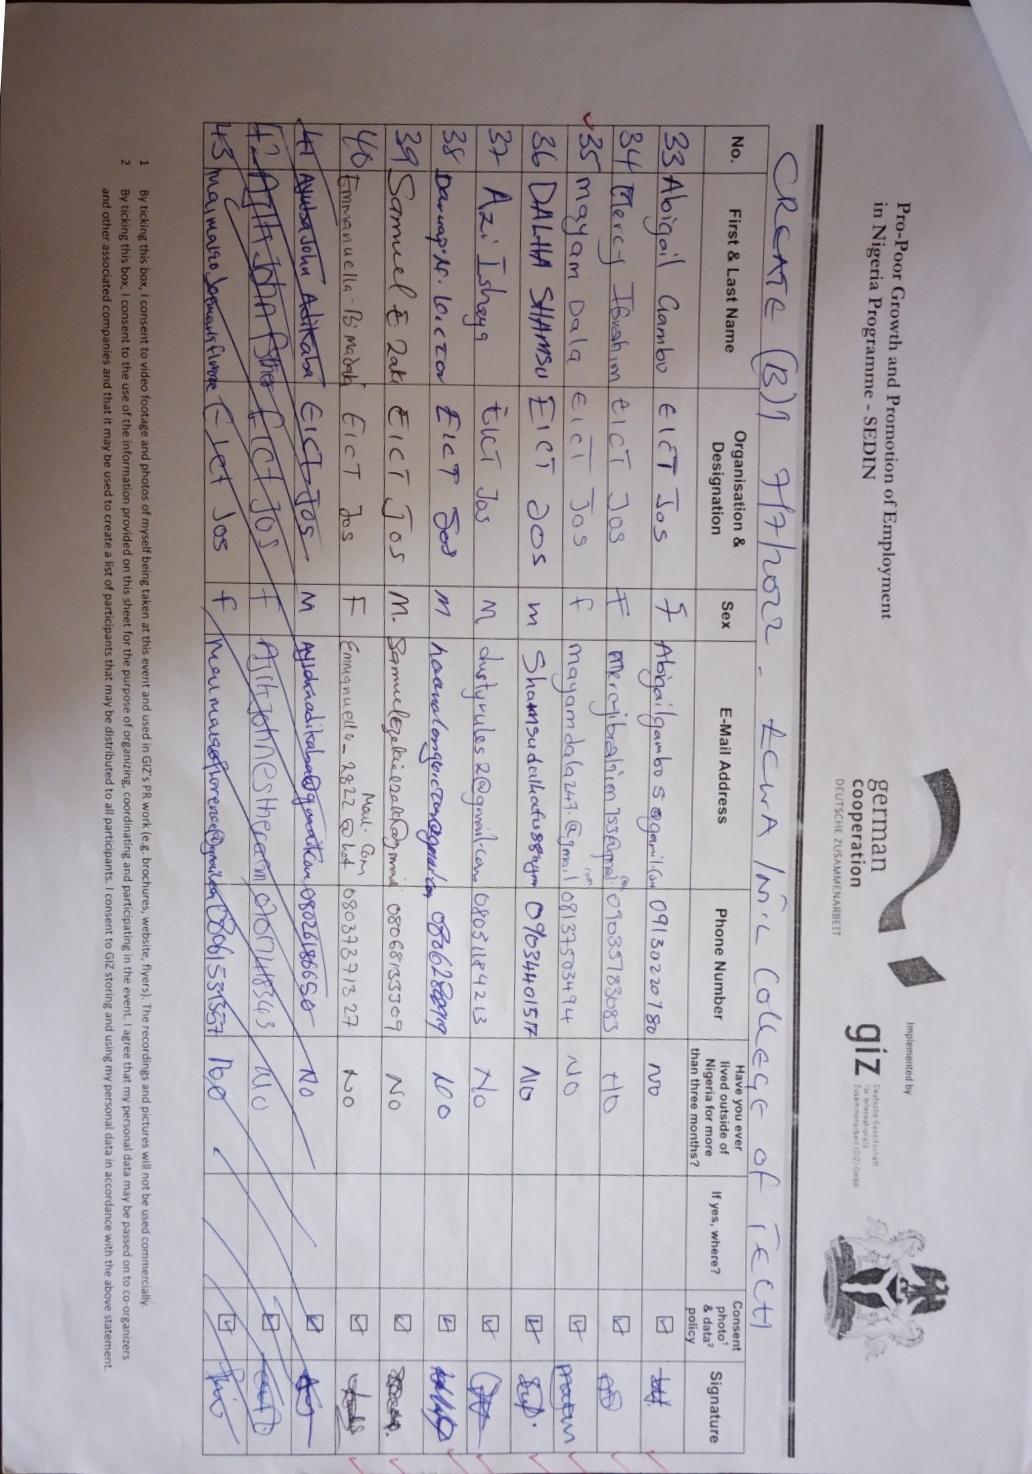 Pro-Poor Growth and Promotion of Employment
in Nigeria Programme - SEDIN
german
cooperation
DEUTSCHE ZUSAMMENARBEIT
Implemented by
giz Deutsche Gesellschaft
für Internationale
Zusammenarbeit (GIZ) GmbH
CREATE (B)1 7/7/2022 - ECWA / COLLEGE of TECH
No. First & Last Name Organisation & Designation Sex E-Mail Address Phone Number Have you ever lived outside of Nigeria for more than three months? If yes, where? Consent photo¹ & data² policy Signature
33 Abigail Gambo EICT Jos F Abigailgambo5@gamil.com 09130220780 NO
34 Mercy Ibrahim EICT Jos F mercyibrahim753@gmail.com 09035783083 NO
35 mayam Dala EICT Jos f mayamdala247.@gmail.com 08137503494 NO
36 DALHA SHAMSU EICT JOS m 09034401517 No
37 Azi Ishaya EICT Jos M dustyrules2@gmail.com 08031184213 No
38 EICT Jos M NO
39 Samuel E Zaki EICT Jos M. 08068133309 No
40 Emmanuella EICT Jos F Emmanuella_2822@hotmail.com 08037371327 NO
41 Ayuba John Adikaba EICT JOS M 08026186650 NO
42 John Esther EICT JOS F NO
43 EICT Jos f 08061531357 NO
1 By ticking this box, I consent to video footage and photos of myself being taken at this event and used in GIZ's PR work (e.g. brochures, website, flyers). The recordings and pictures will not be used commercially.
2 By ticking this box, I consent to the use of the information provided on this sheet for the purpose of organizing, coordinating and participating in the event. I agree that my personal data may be passed on to co-organizers
and other associated companies and that it may be used to create a list of participants that may be distributed to all participants. I consent to GIZ storing and using my personal data in accordance with the above statement.